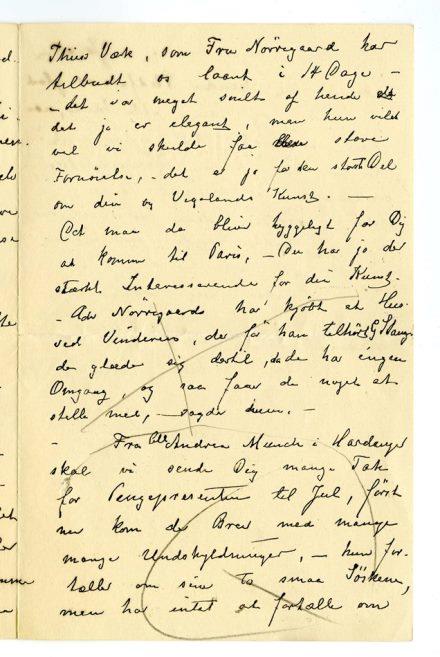 Thiis Værk, som Fru Nörregaard har
tilbudt os laant i 14 Dage. –
– det var meget snilt af hende
det jo er elegant, men hun vilde
vel vi skulde faa store
Fornöielse, – det er jo for den störste Del
om din og Vigelands Kunst. –
Det maa da blive hyggeligt for Dig
at komme til Paris, – Du har jo der
stærkt Interesserende for din Kunst. –
– Adv Nörregaards har kjöbt et Hus
ved Vinderen, der för har tilhört G Stang.
de glæder sig dertil, da de har ingen
Omgang, og saa faar de noget at
stelle med, – sagde hun. –
– Fra Andrea Munch i Hardanger
skal vi sende Dig mange Tak
for Pengepresenten til Jul, först
nu kom der Brev med mange
mange Undskyldninger, – hun for-
tæller om sine to smaa Söskene,
men har intet at fortælle om